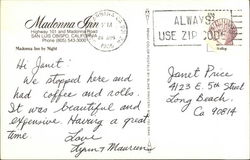 Madonna Inn
Highway 101 and Madonna Road
SAN LUIS OBISPO, CALIFORNIA
Phone (805) 543-3000
Madonna Inn by Night
PM
1990
ALWAYS
USE ZIP CODE
Hi Janet!
We stopped here and
had coffee and rolls.
It was beautiful and
expensive. Having a great
time.
Love
Lynn & Maureen
Janet Price
4123 E. 5th Street
Long Beach,
Ca 90814